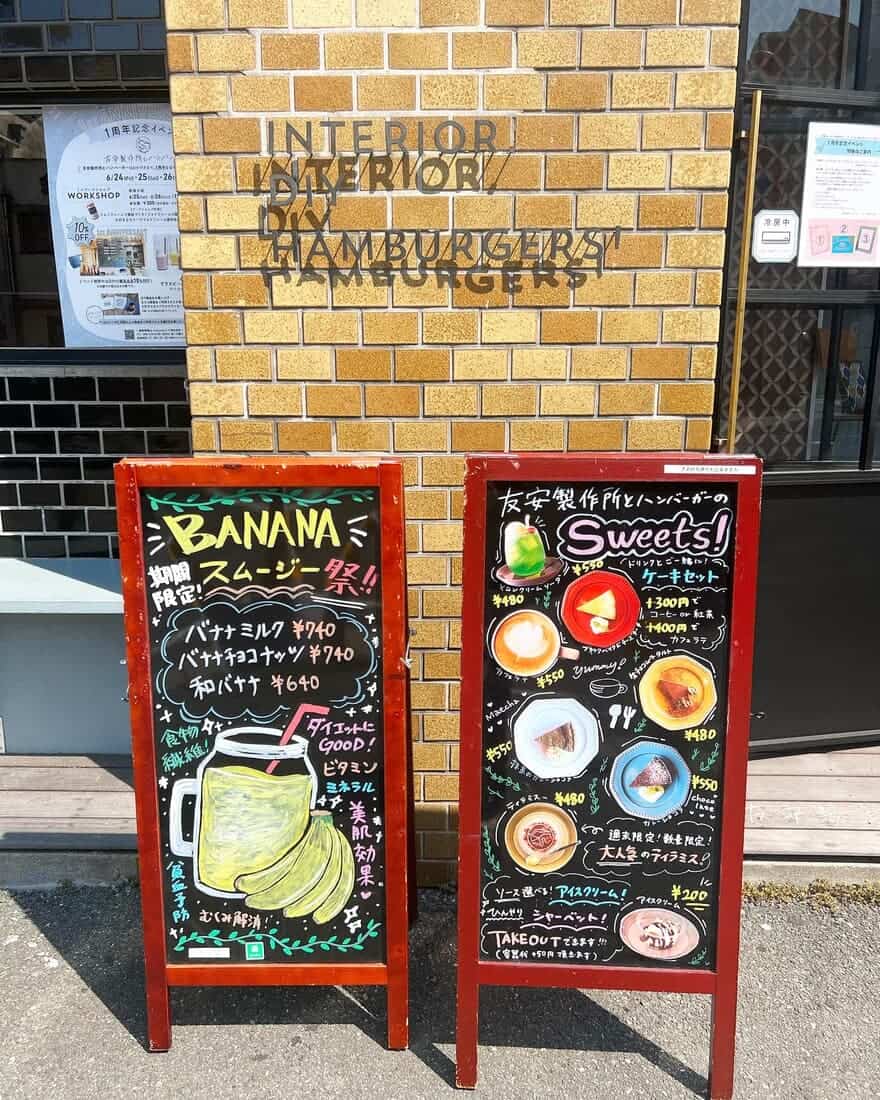 INTERIOR
DIY
HAMBURGERS
1周年記念イベント
6/24(Fri)・25(Sat)・26
WORKSHOP
10%
OFF
1周年記念イベント
冷房中
1
2
3
BANANA
期間
限定!
スムージー祭!!
バナナミルク ¥740
バナナチョコナッツ ¥740
和バナナ ¥640
食物
繊維!
ダイエットに
GOOD!
ビタミン
ミネラル
美肌効果
貧血予防
むくみ解消!
友安製作所とハンバーガーの
Sweets!
¥480
¥550
ドリンクとご一緒に!
ケーキセット
+300円で
コーヒー or 紅茶
+400円で
カフェラテ
カフェラテ
¥550
yummy!
¥480
Matcha
¥550
¥550
choco
ティラミス
¥480
週末限定!数量限定!
大人気のティラミス!
ソース選べる! アイスクリーム!
アイスクリーム
¥200
ひんやり シャーベット!
TAKEOUTできます!!!
(容器代+50円頂きます)